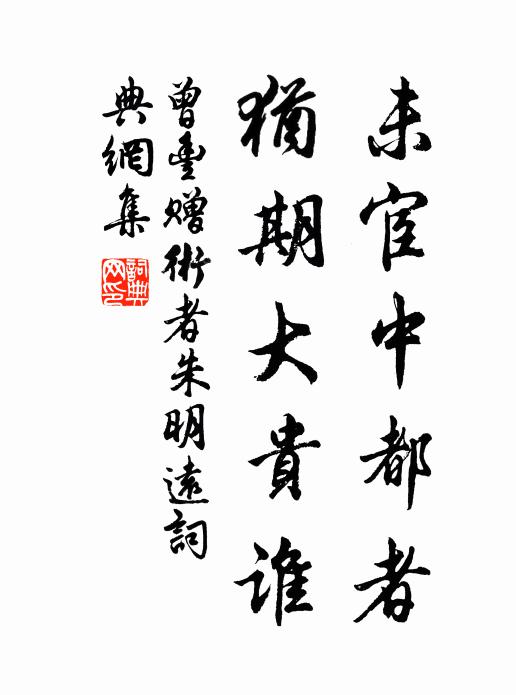 未宦中都者
猶期大貴誰
曾豐贈術者朱明遠詞
典網集
詞典
网印